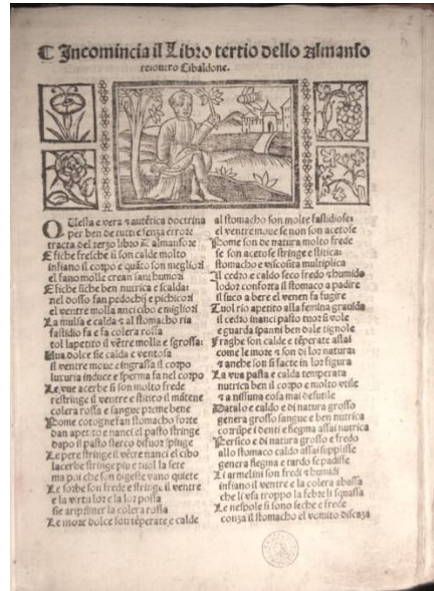 Incomincia il Libro tertio dello Almanso
re ouero Cibaldone.
Questa e vera autētica doctrina
per ben de tutti e senza errore
tracta del terzo libro almansore
E fiche fresche son calde molto
infiano il corpo e quāto son migliori
el fano molle e rean sani humori
E fiche siche ben nutrica e scalda:
nel dosso fan pedochi e pichicori
el ventre molla anci cibo e migliori
La mulsa e calda al stomacho ria
fastidio fa e fa colera rossa
tol lapetito il vētre molla e sgrossa:
Uua dolce sie calda e ventosa
il ventre moue e ingrassa il corpo
luxuria induce e sperma fa nel corpo
Le uue acerbe si son molto frede
restringe il ventre e sticio il mātene
colera rossa e sangue preme bene
Pome cotogne fan stomacho forte
dan apetito e nanci el pasto stringe
dapo il pasto sterco difuor spinge
Le pere stringe il vētre nanci el cibo
lacerbe stringe piu e tuol la sete
ma poi che son digeste vano quiete
Le sorbe son frede e stringe il ventre
e la virtu lor e la lor possa
sie aripimer la colera rossa
Le more dolce son tēperate e calde
al stomacho son molte fastidiose:
el ventre moue se non son acetose
Pome son de natura molto frede
se son acetose stringe e stitica:
stomacho e viscosita multiplica
Il cedro e caldo seco fredo humido
lodor conforta il stomaco a padire
il suco a bere el venen fa fugire
Tuol rio apetito alla femina grauida
il cedro inanci pasto mor vole
e guarda i panni ben dale tignole
Fraghe son calde e tēperate assai
come le more son di lor natura:
anche son si facte in lor figura
La vua pasta e calda temperata
nutrica ben il corpo e molto vtile
a nissuna cosa mai desutile
Datalo e caldo e di natura grosso
genera grosso sangue e ben nutrica
corrūpe i denti e flegma assai nutrica
Persico e di natura grosso e fredo
allo stomaco caldo assai supplisse
genera flegma e tardo se padisse
Li armelini son fredi humidi
infiano il ventre e la colera abassa
che li vsa troppo la febre li squassa
Le nespole si sono seche e frede
conza il stomacho el vomito discaza